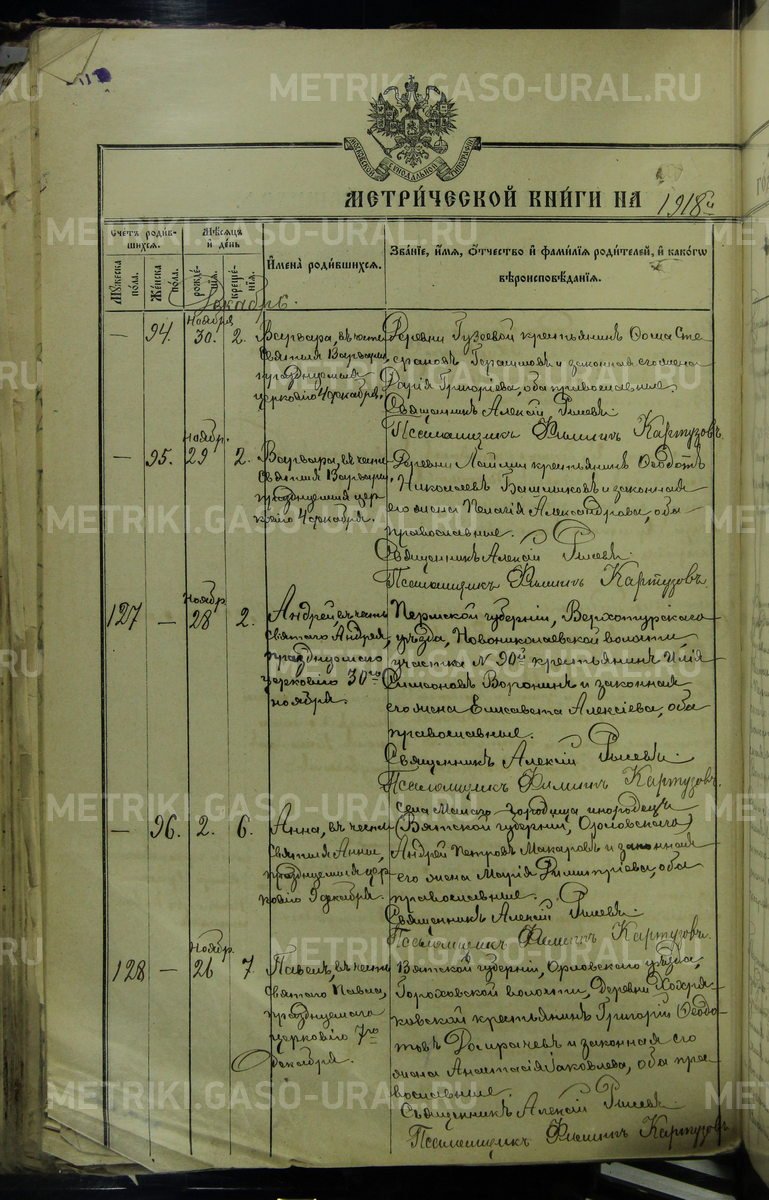 METRIKI.GASO-URAL.RU
МОСКОВСКОЙ СѴНОДАЛЬНОЙ ТИПОГРАФІИ
МЕТРИ́ЧЕСКОЙ КНИ́ГИ НА 1918й
Счетъ роди́вшихся.
Мѣ́сяцъ и́ де́нь
Имена̀ роди́вшихся.
Зва́нїе, и́мя, ѻ҆́тчество и҆ фами́лїя роди́телей, и҆ како́гѡ вѣроисповѣ́данїя.
Мꙋ́жеска по́ла.
Же́нска по́ла.
рожде́нїя.
креще́нїя.
Декабрь.
— 94. Ноября 30. 2.
Варвара, въ честь
Святыя Варвары,
празднуемыя
церковію 4 декабря.
Деревни Гузеевой крестьянинъ
законная его жена
Дарія Григоріева, оба православные.
Священникъ Алексій
Псаломщикъ Филиппъ Картузовъ.
— 95. Ноябр. 29 2.
Варвара, въ честь
Святыя Варвары,
празднуемыя цер-
ковію 4 декабря.
Деревни крестьянинъ Ѳеодотъ
Николаевъ Башлыковъ и законная
его жена Пелагія Александрова, оба
православные.
Священникъ Алексій
Псаломщикъ Филиппъ Картузовъ.
127 — Ноябр 28 2.
Андрей, въ честь
Святаго Андрея,
празднуемаго
церковію 30го
ноября.
Пермской губерніи, Верхотурскаго
уѣзда, Новониколаевской волости,
участка № 90й крестьянинъ Илія
Симеоновъ Воронинъ и законная
его жена Елисавета Алексіева, оба
православные.
Священникъ Алексій
Псаломщикъ Филиппъ Картузовъ.
— 96. 2. 6.
Анна, въ честь
Святыя Анны,
празднуемыя цер-
ковію 9 декабря
села Малаго Городища инородецъ
(Вятской губерніи, Орловскаго)
Андрей Петровъ Макаровъ и законная
его жена Марія Димитріева, оба
православные.
Священникъ Алексій
Псаломщикъ Филиппъ Картузовъ.
128 — Ноябр. 26 7.
Павелъ, въ честь
Святаго Павла,
празднуемаго
церковію 7го
декабря.
Вятской губерніи, Орловскаго уѣзда,
Гороховской волости, деревни
крестьянинъ Григорій Ѳеодо-
товъ Домрачевъ и законная его
жена Анастасія Іаковлева, оба пра-
вославные.
Священникъ Алексій
Псаломщикъ Филиппъ Картузовъ